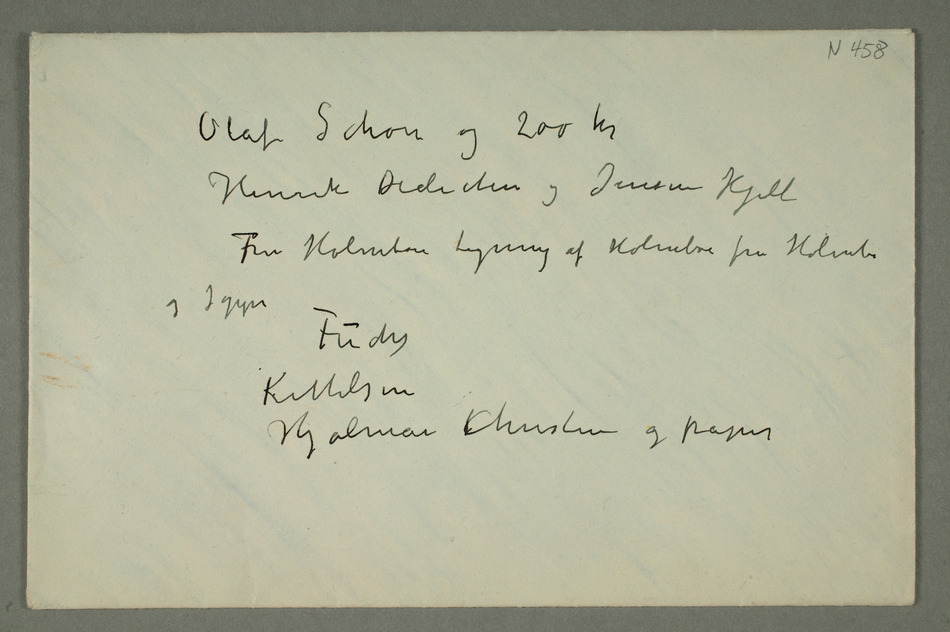 N 458
Olaf Schou og 200 kr
Henrik Dedichen og Jensen Hjell
Fru Holmboe Tegning af Holmboe fra Holmbo
og
Fuchs
Kittelsen
Hjalmar Christen og papir